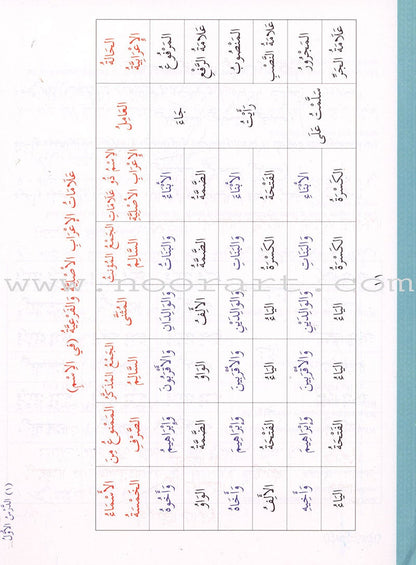 (١) الدَّرْسُ الأَوَّلُ
عَلَامَاتُ الإِعْرَابِ الأَصْلِيَّةُ وَالفَرْعِيَّةُ (فِي الاِسْمِ)
الحَالَةُ الإِعْرَابِيَّةُ العَامِلُ الاِسْمُ ذُو عَلَامَاتِ الإِعْرَابِ الأَصْلِيَّةِ الجَمْعُ المُؤَنَّثُ السَّالِمُ المُثَنَّى الجَمْعُ المُذَكَّرُ السَّالِمُ المَمْنُوعُ مِنَ الصَّرْفِ الأَسْمَاءُ الخَمْسَةُ
المَرْفُوعُ جَاءَ الأَبْنَاءُ وَالبَنَاتُ وَالوَالِدَانِ وَالأَقْرَبُونَ وَإِبْرَاهِيمُ وَأَخُوهُ
عَلَامَةُ الرَّفْعِ الضَّمَّةُ الضَّمَّةُ الأَلِفُ الوَاوُ الضَّمَّةُ الوَاوُ
المَنْصُوبُ رَأَيْتُ الأَبْنَاءَ وَالبَنَاتِ وَالوَالِدَيْنِ وَالأَقْرَبِينَ وَإِبْرَاهِيمَ وَأَخَاهُ
عَلَامَةُ النَّصْبِ الفَتْحَةُ الكَسْرَةُ اليَاءُ اليَاءُ الفَتْحَةُ الأَلِفُ
المَجْرُورُ سَلَّمْتُ عَلَى الأَبْنَاءِ وَالبَنَاتِ وَالوَالِدَيْنِ وَالأَقْرَبِينَ وَإِبْرَاهِيمَ وَأَخِيهِ
عَلَامَةُ الجَرِّ الكَسْرَةُ الكَسْرَةُ اليَاءُ اليَاءُ الفَتْحَةُ اليَاءُ
www.noorart.com